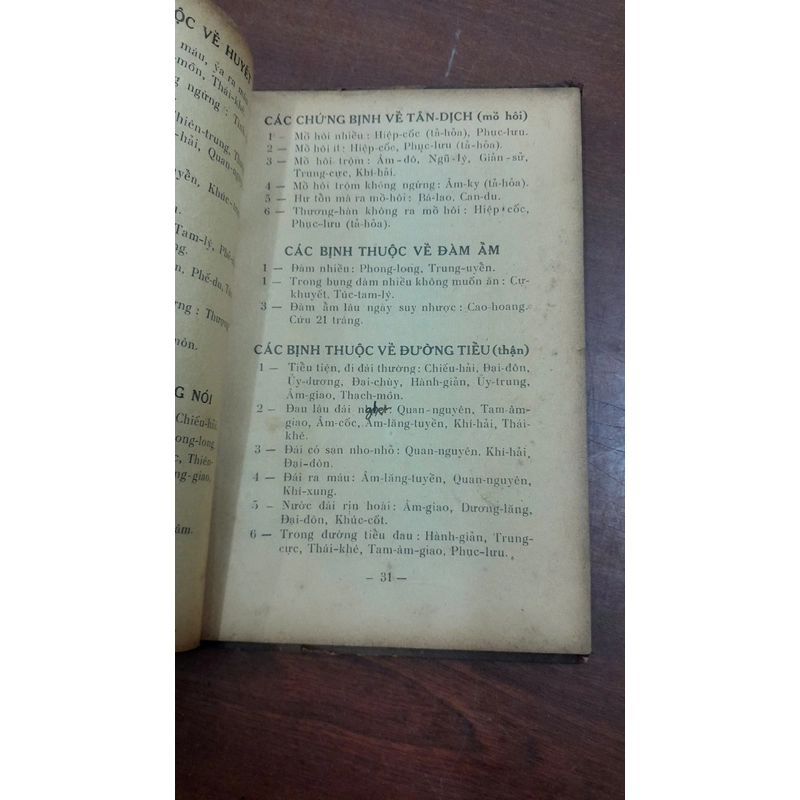 ỘC VỀ HUYẾT
máu, ỉa ra máu
môn, Thái-khê
ng ngừng : Tinh
Thiên-trung, Thần
-hải, Quan-nguyên
uyền, Khúc-
du.
Tam-lý, Phế
ng.
n, Phế-du, Túc
ừng : Thượng
môn.
G NÓI
Chiếu-hải,
hong-long
c, Thiên-
ng-giao,
âm.
CÁC CHỨNG BỊNH VỀ TÂN-DỊCH (mồ hôi)
1 – Mồ hôi nhiều : Hiệp-cốc (tả-hỏa), Phục-lưu.
2 — Mồ hôi ít : Hiệp-cốc, Phục-lưu (tả-hỏa).
3 — Mồ hôi trộm : Âm-đô, Ngũ-lý, Giản-sử,
Trung-cực, Khí-hải.
4 — Mồ hôi trộm không ngừng : Âm-ky (tả-hỏa).
5 — Hư tổn mà ra mồ-hôi : Bà-lao, Can-du.
6 — Thương-hàn không ra mồ hôi : Hiệp-cốc,
Phục-lưu (tả-hỏa).
CÁC BỊNH THUỘC VỀ ĐÀM ẨM
1 — Đàm nhiều : Phong-long, Trung-uyển.
1 — Trong bụng đàm nhiều không muốn ăn : Cự-
khuyết. Túc-tam-lý.
3 — Đàm ẩm lâu ngày suy nhược : Cao-hoang.
Cứu 21 tráng.
CÁC BỊNH THUỘC VỀ ĐƯỜNG TIỂU (thận)
1 — Tiểu tiện, đi đái thường : Chiếu-hải, Đại-đôn,
Ủy-dương, Đại-chùy, Hành-giản, Ủy-trung,
Âm-giao, Thạch-môn.
2 — Đau lậu đái nghẹt: Quan-nguyên, Tam-âm-
giao, Âm-cốc, Âm-lăng-tuyền, Khí-hải, Thái-
khê.
3 — Đái có sạn nho-nhỏ : Quan-nguyên. Khí-hải,
Đại-đôn.
4 — Đái ra máu : Âm-lăng-tuyền, Quan-nguyên,
Khí-xung.
5 — Nước đái rịn hoài : Âm-giao, Dương-lăng,
Đại-đôn, Khúc-cốt.
6 — Trong đường tiểu đau : Hành-giản, Trung-
cực, Thái-khê, Tam-âm-giao, Phục-lưu.
– 31 —